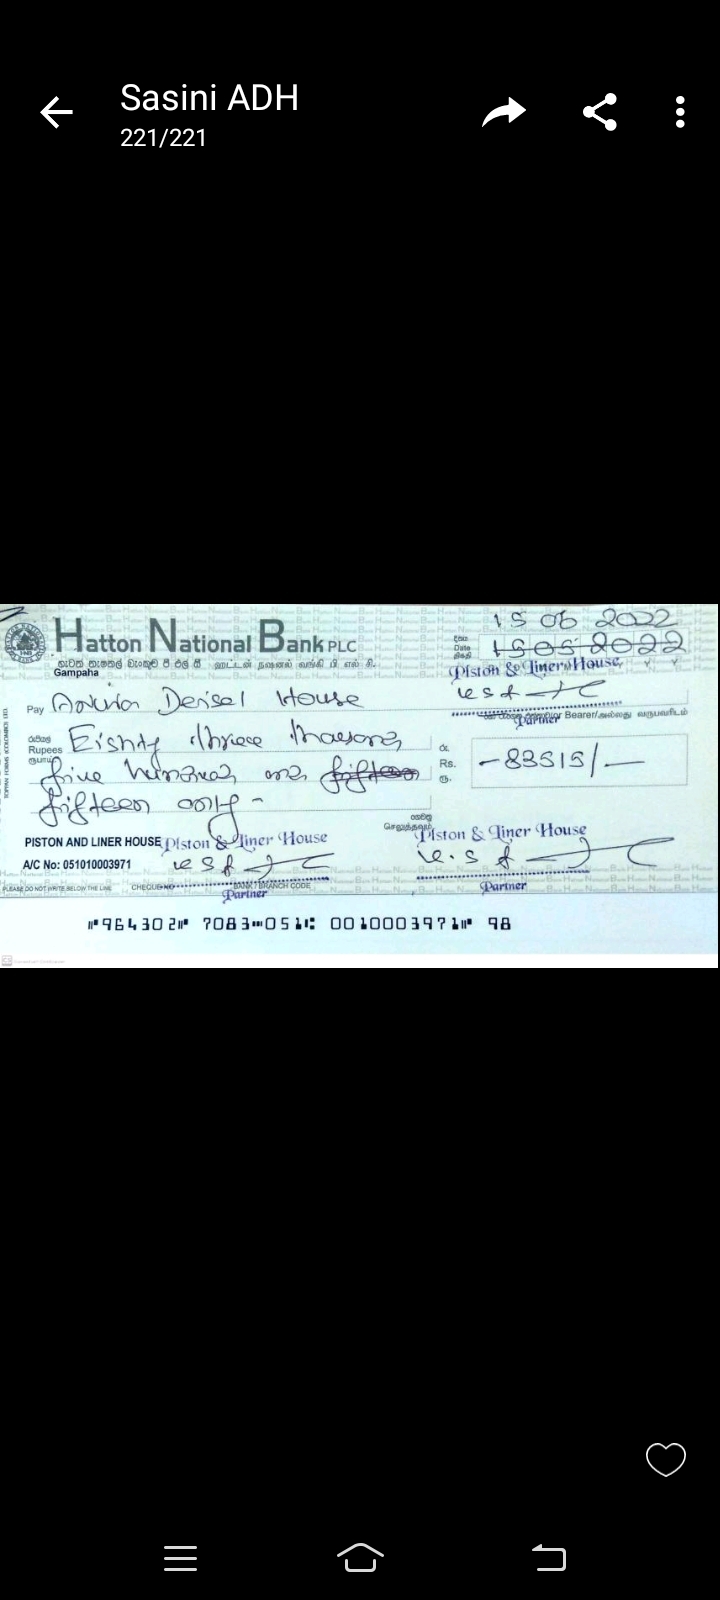 Sasini ADH
221/221
Hatton National Bank PLC
හැටන් නැෂනල් බෑංකුව පී එල් සී ஹட்டன் நஷனல் வங்கி பி எல் சி.
Gampaha
15 06 2022
දිනය
Date
திகதி
15 05 2022
Piston & Liner House
Partner
Pay Deisel House
Bearer/அல்லது வருபவரிடம்
රුපියල්
Rupees
ரூபாய்
Eighty three thousand
five hundred and fifteen
fifteen only -
රු.
Rs.
ரூ.
-83515/-
PISTON AND LINER HOUSE
A/C No: 051010003971
Piston & Liner House
Partner
Piston & Liner House
Partner
PLEASE DO NOT WRITE BELOW THE LINE CHEQUE NO BANK / BRANCH CODE
⑈964302⑈ 7083⑉051⑆ 0010003971⑈ 98